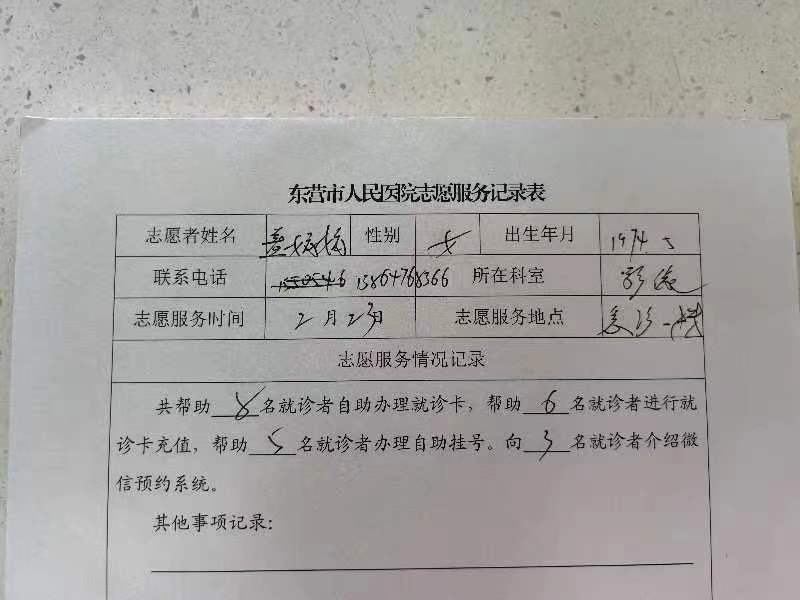 东营市人民医院志愿服务记录表
志愿者姓名 性别 女 出生年月 1974.5
联系电话 13864768366 所在科室 影像
志愿服务时间 2月23日 志愿服务地点 急诊
志愿服务情况记录
共帮助 8 名就诊者自助办理就诊卡，帮助 6 名就诊者进行就
诊卡充值，帮助 5 名就诊者办理自助挂号。向 3 名就诊者介绍微
信预约系统。
其他事项记录：